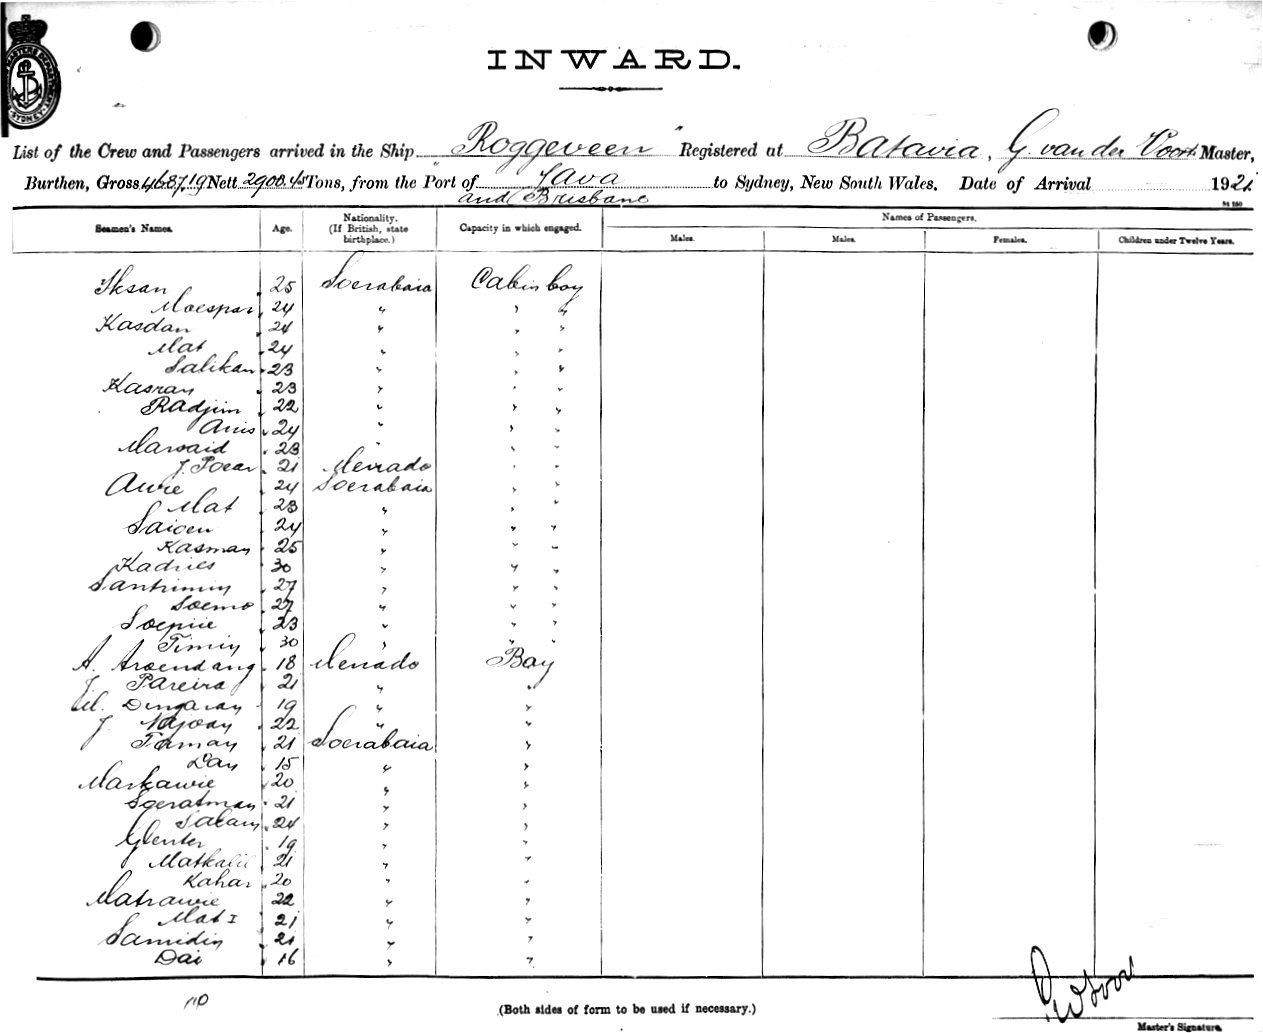 INWARD.
List of the Crew and Passengers arrived in the Ship "Roggeveen" Registered at Batavia, G. van der Voort Master,
Burthen, Gross 4687.19 Nett 2900.45 Tons, from the Port of Java to Sydney, New South Wales. Date of Arrival 1921
and Brisbane
Seamen's Names. Age. Nationality. (If British, state birthplace.) Capacity in which engaged. Names of Passengers.
Males. Males. Females. Children under Twelve Years.
Iksan 25 Soerabaia Cabin boy
Moespar 24 " " "
Kasdan 24 " " "
Mat 24 " " "
Salikan 23 " " "
Kasran 23 " " "
Radjim 22 " " "
Anis 24 " " "
Marsaid 23 " " "
J. Poear 21 Menado " "
Awie 24 Soerabaia " "
Mat 23 " " "
Saioen 24 " " "
Kasman 25 " " "
Kadries 30 " " "
Santrimin 27 " " "
Soemo 27 " " "
Soepiie 23 " " "
Timin 30 " " "
A. Aroendang 18 Menado Boy
J. Pareira 21 " "
M. Dingaray 19 " "
J. Najoay 22 " "
Taman 21 Soerabaia "
Day 15 " "
Markawie 20 " "
Soeratman 21 " "
Salam 24 " "
Glenter 19 " "
Matkalil 21 " "
Kahar 20 " "
Matrawie 22 " "
Mat I 21 " "
Samidin 21 " "
Dai 16 " "
110
(Both sides of form to be used if necessary.)
Master's Signature.